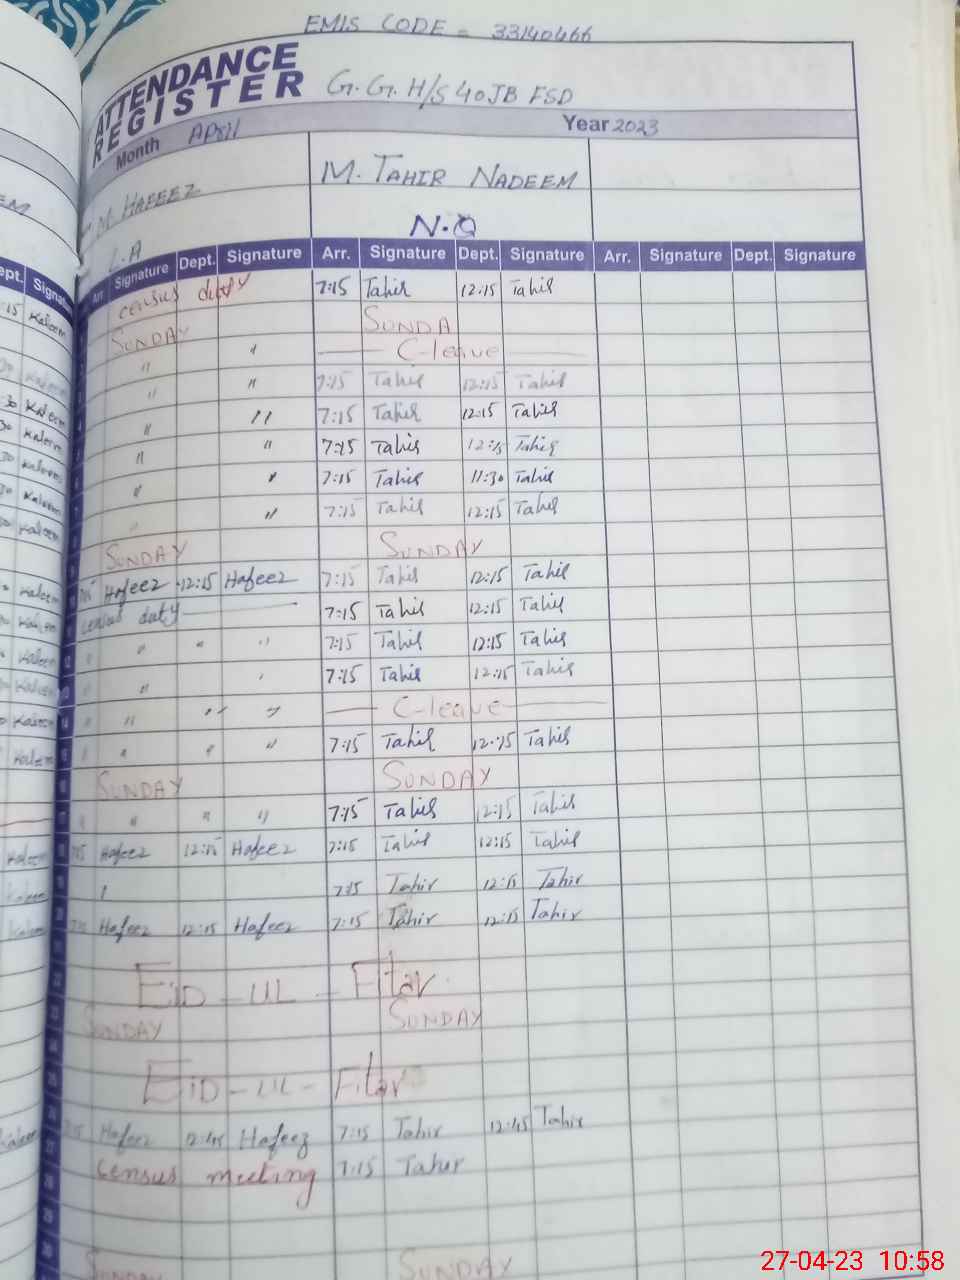 EMIS CODE = 33140466
ATTENDANCE REGISTER G.G.H/S 40JB FSD
Month April Year 2023
M. HAFEEZ M. TAHIR NADEEM
L.A N.Q
Arr. Signature Dept. Signature Arr. Signature Dept. Signature Arr. Signature Dept. Signature
census duty 7:15 Tahir 12:15 Tahir
SUNDAY SUNDA
" " C-leave
" " 7:15 Tahir 12:15 Tahir
" " 7:15 Tahir 12:15 Tahir
" " 7:15 Tahir 12:15 Tahir
" " 7:15 Tahir 11:30 Tahir
" " 7:15 Tahir 12:15 Tahir
SUNDAY SUNDAY
Hafeez 12:15 Hafeez 7:15 Tahir 12:15 Tahir
census duty 7:15 Tahir 12:15 Tahir
" " " " 7:15 Tahir 12:15 Tahir
" " " 7:15 Tahir 12:15 Tahir
" " " " C-leave
" " " " 7:15 Tahir 12:15 Tahir
SUNDAY SUNDAY
" " " " 7:15 Tahir 12:15 Tahir
Hafeez 12:15 Hafeez 7:15 Tahir 12:15 Tahir
7:15 Tahir 12:15 Tahir
Hafeez 12:15 Hafeez 7:15 Tahir 12:15 Tahir
EiD - UL - Fitar
SUNDAY SUNDAY
EiD - UL - Fitar
Hafeez 12:45 Hafeez 7:15 Tahir 12:45 Tahir
census meeting 7:15 Tahir
SUNDAY SUNDAY
27-04-23 10:58